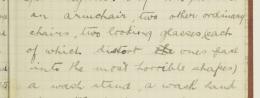 an armchair, two other ordinary
chairs, two looking glasses (each
of which distort the ones face
into the most horrible shapes)
a wash stand, a wash hand